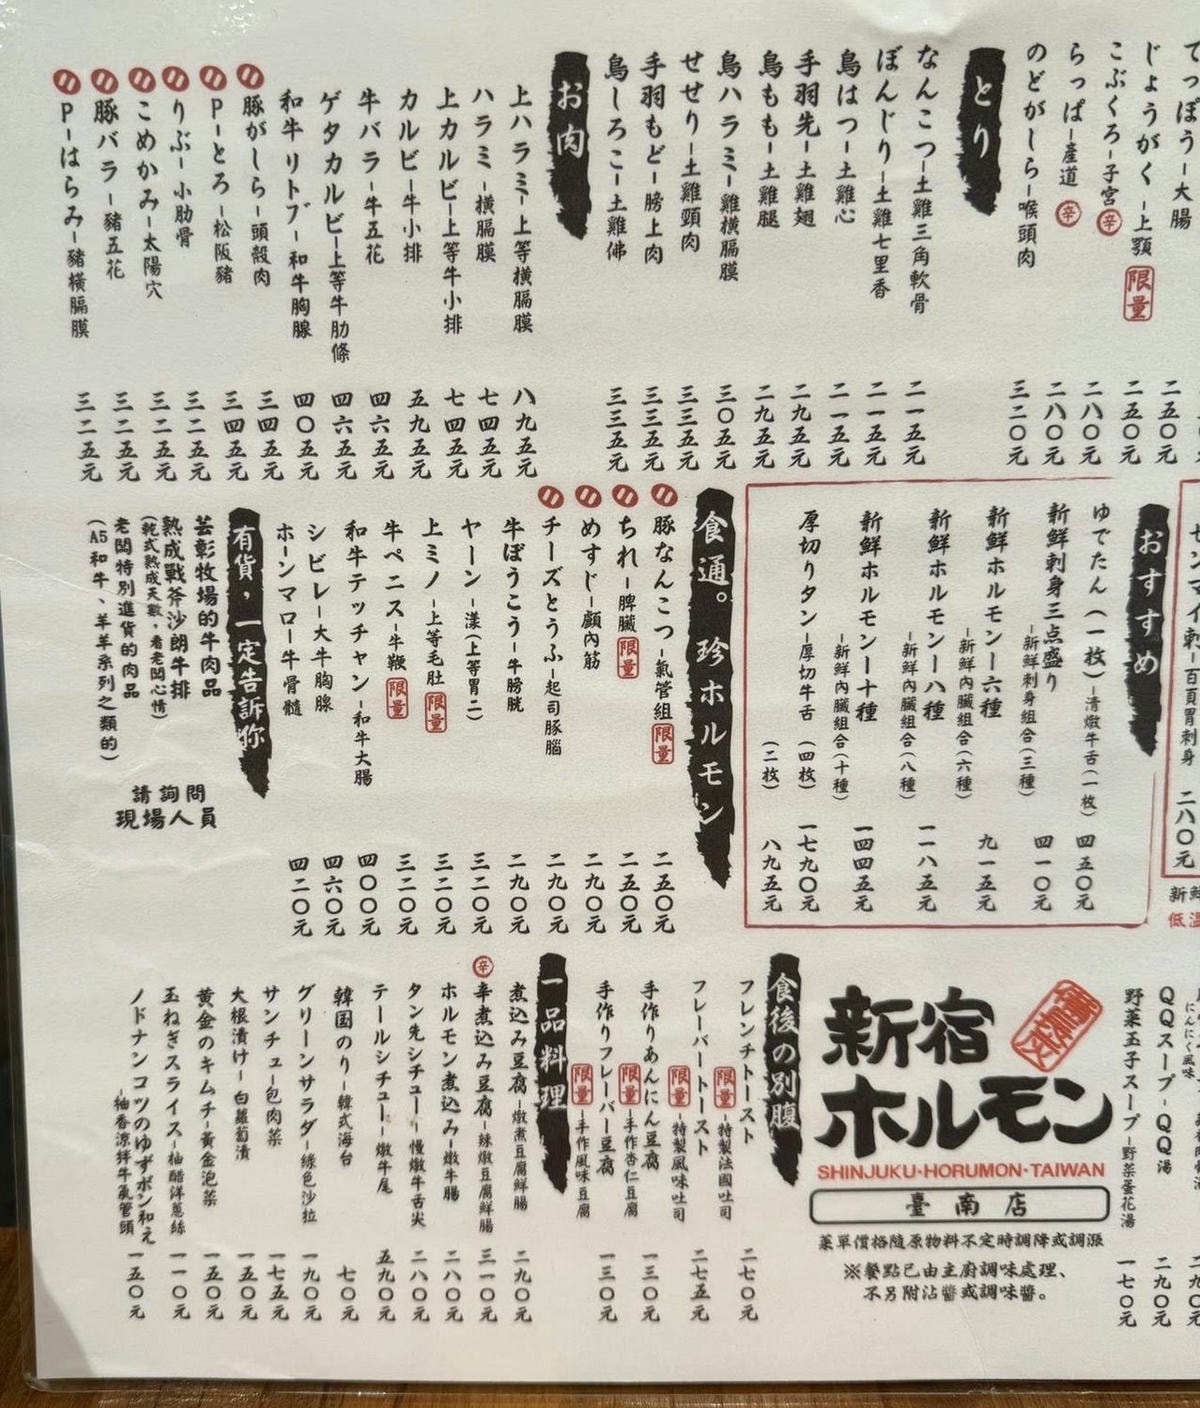 てっぽう-大腸
じょうがく-上顎 限量 二五〇元
こぶくろ-子宮 辛 二八〇元
らっぱ-産道 辛 二八〇元
のどがしら-喉頭肉 三二〇元
とり
なんこつ-土雞三角軟骨 二一五元
ぼんじり-土雞七里香 二一五元
鳥はつ-土雞心 二一五元
手羽先-土雞翅 二九五元
鳥もも-土雞腿 二九五元
鳥ハラミ-雞横膈膜 三〇五元
せせり-土雞頸肉 三三五元
手羽もど-膀上肉 三三五元
鳥しろこ-土雞佛 三三五元
お肉
上ハラミ-上等横膈膜 八九五元
ハラミ-横膈膜 七四五元
上カルビ-上等牛小排 七四五元
カルビ-牛小排 五九五元
牛バラ-牛五花 四六五元
ゲタカルビ-上等牛肋條 四六五元
和牛リトブ-和牛胸腺 四〇五元
豚がしら-頭殼肉 三四五元
P-とろ-松阪豬 三四五元
りぶ-小肋骨 三二五元
こめかみ-太陽穴 三二五元
豚バラ-豬五花 三二五元
P-はらみ-豬横膈膜 三二五元
センマイ刺-百頁胃刺身 二八〇元
おすすめ
ゆでたん(一枚)-清燉牛舌(一枚) 四五〇元
新鮮刺身三点盛り-新鮮刺身組合(三種) 四一〇元
新鮮ホルモン-六種-新鮮內臟組合(六種) 九一五元
新鮮ホルモン-八種-新鮮內臟組合(八種) 一一八五元
新鮮ホルモン-十種-新鮮內臟組合(十種) 一四四五元
厚切りタン-厚切牛舌 (四枚) 一七九〇元
(二枚) 八九五元
食通。珍ホルモン
豚なんこつ-氣管組 限量 二五〇元
ちれ-脾臟 限量 二五〇元
めすじ-顱內筋 二九〇元
チーズとうふ-起司豚腦 二九〇元
牛ぼうこう-牛膀胱 二九〇元
ヤーン-漾(上等胃二) 三二〇元
上ミノ-上等毛肚 限量 三二〇元
牛ペニス-牛鞭 限量 三二〇元
和牛テッチャン-和牛大腸 四〇〇元
シビレ-大牛胸腺 四六〇元
ホーンマロー-牛骨髓 四二〇元
有貨，一定告訴你
芸彰牧場的牛肉品
熟成戰斧沙朗牛排
(乾式熟成天數，看老闆心情)
老闆特別進貨的肉品
(A5和牛、羊羊系列之類的)
請詢問
現場人員
にんにく風味
QQスープ-QQ湯 二九〇元
野菜玉子スープ-野菜蛋花湯 一七〇元
新宿
ホルモン
SHINJUKU·HORUMON·TAIWAN
臺南店
菜單價格隨原物料不定時調降或調漲
※餐點已由主廚調味處理、
不另附沾醬或調味醬。
食後の別腹
フレンチトースト 限量-特製法國吐司 二七〇元
フレーバートースト 限量-特製風味吐司 二七五元
手作りあんにん豆腐 限量-手作杏仁豆腐 一三〇元
手作りフレーバー豆腐 限量-手作風味豆腐 一三〇元
一品料理
煮込み豆腐-燉煮豆腐鮮腸 二九〇元
辛 辛煮込み豆腐-辣燉豆腐鮮腸 三一〇元
ホルモン煮込み-燉牛腸 二八〇元
タン先シチュー-慢燉牛舌尖 二八〇元
テールシチュー-燉牛尾 五九〇元
韓国のり-韓式海台 七〇元
グリーンサラダ-綠色沙拉 一九〇元
サンチュ-包肉菜 一七五元
大根漬け-白蘿蔔漬 一五〇元
黄金のキムチ-黃金泡菜 一五〇元
玉ねぎスライス-柚醋洋蔥絲 一一〇元
ノドナンコツのゆずポン和え-柚香涼拌牛氣管頭 一五〇元